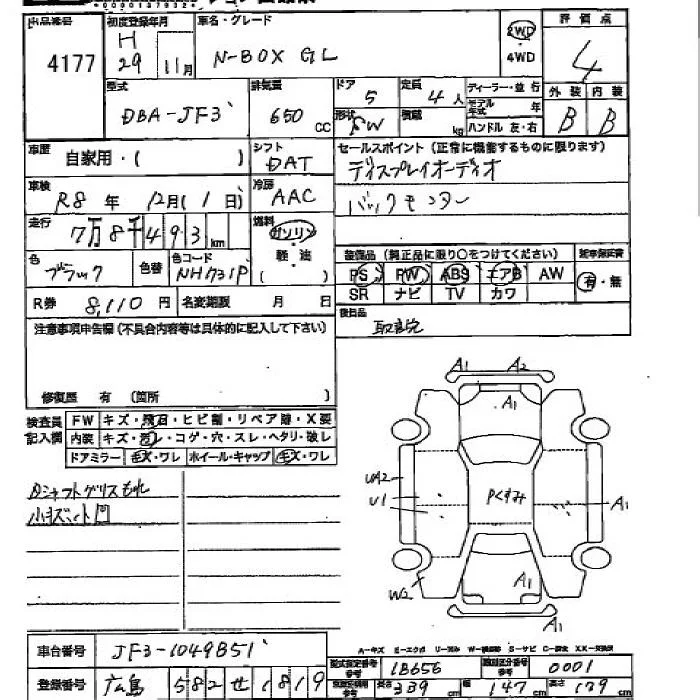 出品番号 4177
初度登録年月 H 29 11月
車名・グレード N-BOX GL
2WD
4WD
評価点 4
外装 B 内装 B
型式 DBA-JF3
排気量 650 CC
ドア 5
定員 4 人
形状 SW
積載 kg
ディーラー・並行
モデル年式 年
ハンドル 左・右
車歴 自家用・( )
シフト DAT
車検 R8 年 12月 ( 1 日)
冷房 AAC
走行 7万8千493 km
燃料 ガソリン
軽・油
( )
色 ブラック
色替
色コード NH731P
R券 8,110 円
名変期限 月 日
セールスポイント(正常に機能するものに限ります)
ディスプレイオーディオ
バックモニター
装備品(純正品に限り○をつけてください)
PS PW ABS エアB AW
SR ナビ TV カワ
有・無
後日品 取説
注意事項申告欄(不具合内容等は具体的に記入して下さい)
修復歴 有 (箇所 )
検査員記入欄
FW キズ・飛石・ヒビ割・リペア跡・X要
内装 キズ・汚レ・コゲ・穴・スレ・ヘタリ・破レ
ドアミラー キズ・ワレ ホイール・キャップ キズ・ワレ
Dシャフトグリスもれ
小キズ 凹
A1 A2
A1
UA2
U1
Pくすみ
A1
W2
A1
A1
A-キズ E-エクボ U-凹み W-補修跡 S-サビ C-腐食 XX-交換済
車台番号 JF3-1049851
型式指定番号 18656
類別区分番号 0001
登録番号 広島 582 せ 1819
長さ 339 cm
幅 147 cm
高さ 179 cm